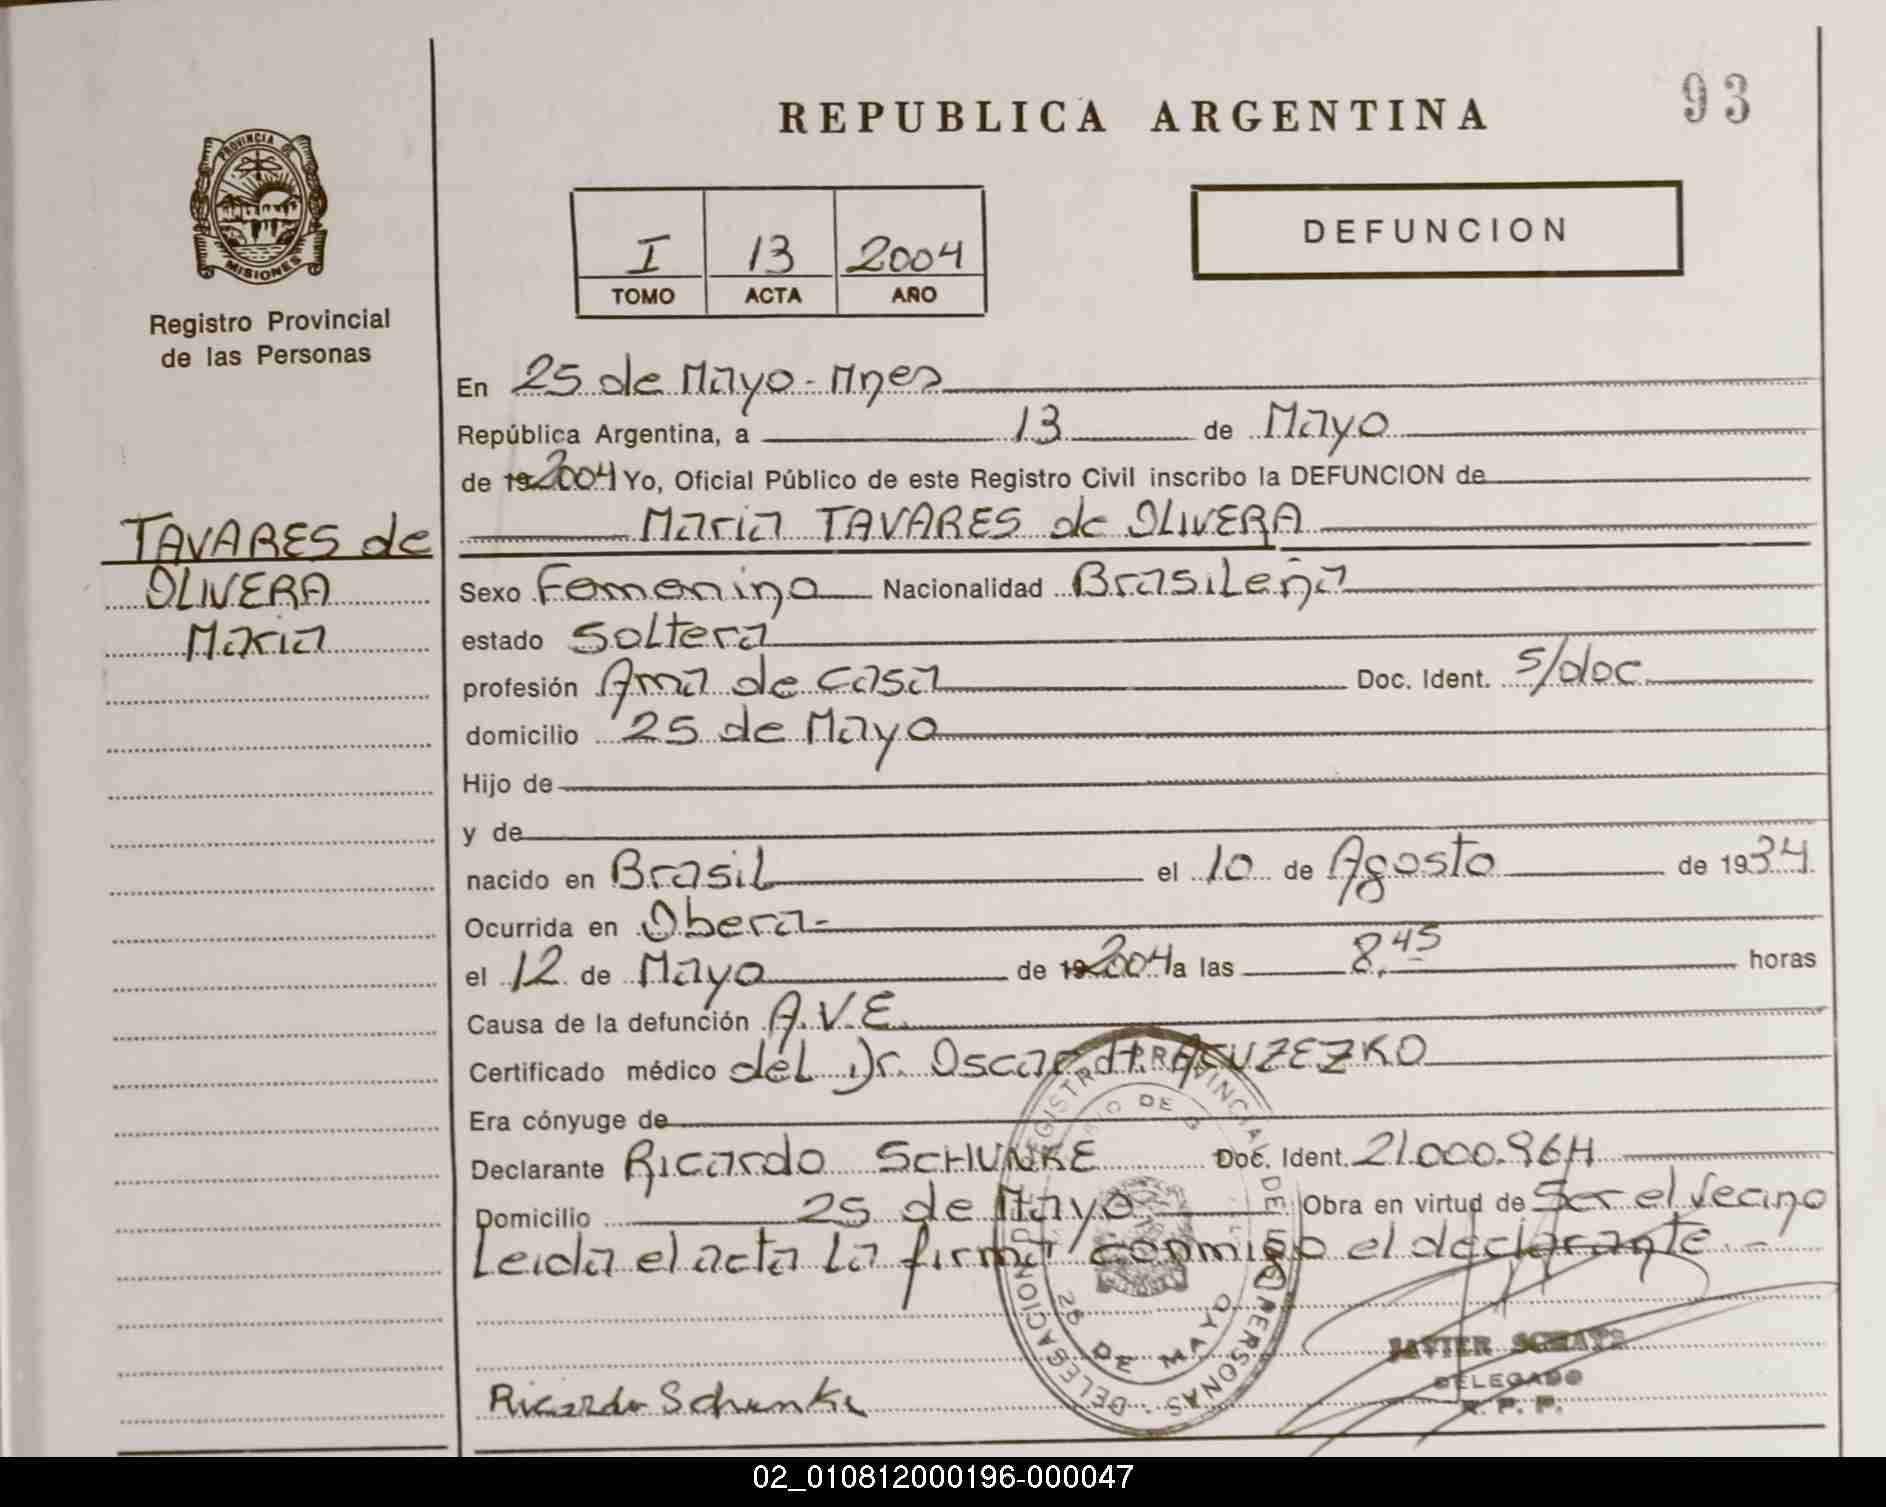 93
REPUBLICA ARGENTINA
PROVINCIA DE
MISIONES
Registro Provincial
de las Personas
DEFUNCION
I 13 2004
TOMO ACTA AÑO
En 25 de Mayo - Mnes
República Argentina, a 13 de Mayo
de 19 2004 Yo, Oficial Público de este Registro Civil inscribo la DEFUNCION de
Maria TAVARES de OLIVERA
TAVARES de
OLIVERA
Maria
Sexo Femenino Nacionalidad Brasileña
estado Soltera
profesión Ama de casa Doc. Ident. s/doc.
domicilio 25 de Mayo
Hijo de
y de
nacido en Brasil el 10 de Agosto de 1934
Ocurrida en Obera-
el 12 de Mayo de 19 2004 a las 8,45 horas
Causa de la defunción A.V.E.
Certificado médico del Dr. Oscar H.
Era cónyuge de
Declarante Ricardo SCHUNKE Doc. Ident. 21.000.964
Domicilio 25 de Mayo Obra en virtud de Ser el Vecino
Leida el acta la firma conmigo el declarante.-
REGISTRO PROVINCIAL DE LAS PERSONAS · DELEGACION
25 DE MAYO
Ricardo Schunke
JAVIER
DELEGADO
R. P. P.
02_010812000196-000047